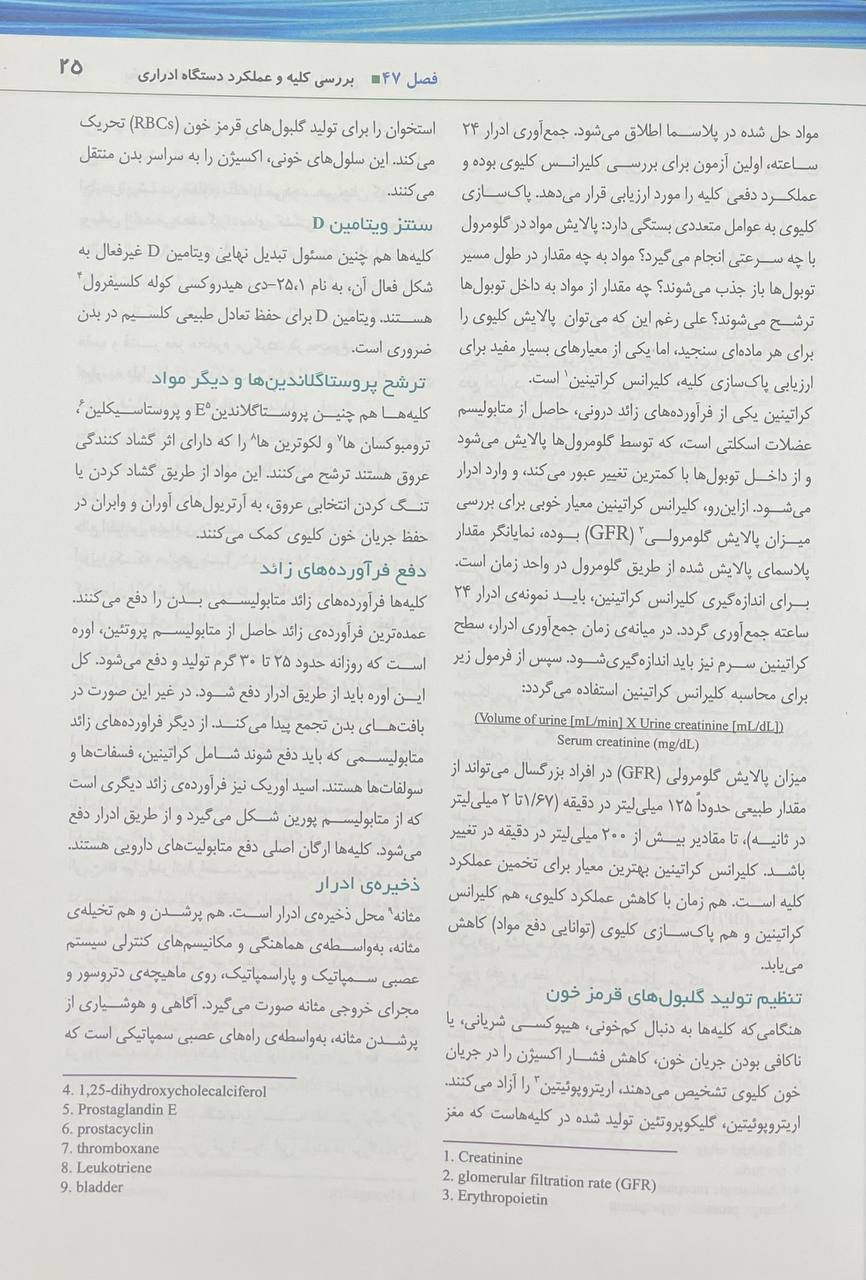 فصل ۴۷ ■ بررسی کلیه و عملکرد دستگاه ادراری
۲۵
مواد حل شده در پلاسما اطلاق می‌شود. جمع‌آوری ادرار ۲۴
ساعته، اولین آزمون برای بررسی کلیرانس کلیوی بوده و
عملکرد دفعی کلیه را مورد ارزیابی قرار می‌دهد. پاک‌سازی
کلیوی به عوامل متعددی بستگی دارد: پالایش مواد در گلومرول
با چه سرعتی انجام می‌گیرد؟ مواد به چه مقدار در طول مسیر
توبول‌ها باز جذب می‌شوند؟ چه مقدار از مواد به داخل توبول‌ها
ترشح می‌شوند؟ علی رغم این که می‌توان پالایش کلیوی را
برای هر ماده‌ای سنجید، اما یکی از معیارهای بسیار مفید برای
ارزیابی پاک‌سازی کلیه، کلیرانس کراتینین۱ است.
کراتینین یکی از فرآورده‌های زائد درونی، حاصل از متابولیسم
عضلات اسکلتی است، که توسط گلومرول‌ها پالایش می‌شود
و از داخل توبول‌ها با کمترین تغییر عبور می‌کند، و وارد ادرار
می‌شود. ازاین‌رو، کلیرانس کراتینین معیار خوبی برای بررسی
میزان پالایش گلومرولی۲ (GFR) بوده، نمایانگر مقدار
پلاسمای پالایش شده از طریق گلومرول در واحد زمان است.
برای اندازه‌گیری کلیرانس کراتینین، باید نمونه‌ی ادرار ۲۴
ساعته جمع‌آوری گردد. در میانه‌ی زمان جمع‌آوری ادرار، سطح
کراتینین سرم نیز باید اندازه‌گیری‌شود. سپس از فرمول زیر
برای محاسبه کلیرانس کراتینین استفاده می‌گردد:
(Volume of urine [mL/min] X Urine creatinine [mL/dL])
Serum creatinine (mg/dL)
میزان پالایش گلومرولی (GFR) در افراد بزرگسال می‌تواند از
مقدار طبیعی حدوداً ۱۲۵ میلی‌لیتر در دقیقه (۱/۶۷تا ۲ میلی‌لیتر
در ثانیه)، تا مقادیر بیش از ۲۰۰ میلی‌لیتر در دقیقه در تغییر
باشد. کلیرانس کراتینین بهترین معیار برای تخمین عملکرد
کلیه است. هم زمان با کاهش عملکرد کلیوی، هم کلیرانس
کراتینین و هم پاک‌سازی کلیوی (توانایی دفع مواد) کاهش
می‌یابد.
تنظیم تولید گلبول‌های قرمز خون
هنگامی‌که کلیه‌ها به دنبال کم‌خونی، هیپوکسی شریانی، یا
ناکافی بودن جریان خون، کاهش فشار اکسیژن را در جریان
خون کلیوی تشخیص می‌دهند، اریتروپوئیتین۳ را آزاد می‌کنند.
اریتروپوئیتین، گلیکوپروتئین تولید شده در کلیه‌هاست که مغز
1. Creatinine
2. glomerular filtration rate (GFR)
3. Erythropoietin
استخوان را برای تولید گلبول‌های قرمز خون (RBCs) تحریک
می‌کند. این سلول‌های خونی، اکسیژن را به سراسر بدن منتقل
می‌کنند.
سنتز ویتامین D
کلیه‌ها هم چنین مسئول تبدیل نهایی ویتامین D غیرفعال به
شکل فعال آن، به نام ۲۵،۱–دی هیدروکسی کوله کلسیفرول۴
هستند. ویتامین D برای حفظ تعادل طبیعی کلسیم در بدن
ضروری است.
ترشح پروستاگلاندین‌ها و دیگر مواد
کلیه‌ها هم چنین پروستاگلاندین E۵ و پروستاسیکلین۶،
ترومبوکسان ها۷ و لکوترین ها۸ را که دارای اثر گشاد کنندگی
عروق هستند ترشح می‌کنند. این مواد از طریق گشاد کردن یا
تنگ کردن انتخابی عروق، به آرتریول‌های آوران و وابران در
حفظ جریان خون کلیوی کمک می‌کنند.
دفع فرآورده‌های زائد
کلیه‌ها فرآورده‌های زائد متابولیسمی بدن را دفع می‌کنند.
عمده‌ترین فرآورده‌ی زائد حاصل از متابولیسم پروتئین، اوره
است که روزانه حدود ۲۵ تا ۳۰ گرم تولید و دفع می‌شود. کل
این اوره باید از طریق ادرار دفع شود. در غیر این صورت در
بافت‌های بدن تجمع پیدا می‌کند. از دیگر فراورده‌های زائد
متابولیسمی که باید دفع شوند شامل کراتینین، فسفات‌ها و
سولفات‌ها هستند. اسید اوریک نیز فرآورده‌ی زائد دیگری است
که از متابولیسم پورین شکل می‌گیرد و از طریق ادرار دفع
می‌شود. کلیه‌ها ارگان اصلی دفع متابولیت‌های دارویی هستند.
ذخیره‌ی ادرار
مثانه۹ محل ذخیره‌ی ادرار است. هم پرشدن و هم تخیله‌ی
مثانه، به‌واسطه‌ی هماهنگی و مکانیسم‌های کنترلی سیستم
عصبی سمپاتیک و پاراسمپاتیک، روی ماهیچه‌ی دتروسور و
مجرای خروجی مثانه صورت می‌گیرد. آگاهی و هوشیاری از
پرشدن مثانه، به‌واسطه‌ی راه‌های عصبی سمپاتیکی است که
4. 1,25-dihydroxycholecalciferol
5. Prostaglandin E
6. prostacyclin
7. thromboxane
8. Leukotriene
9. bladder